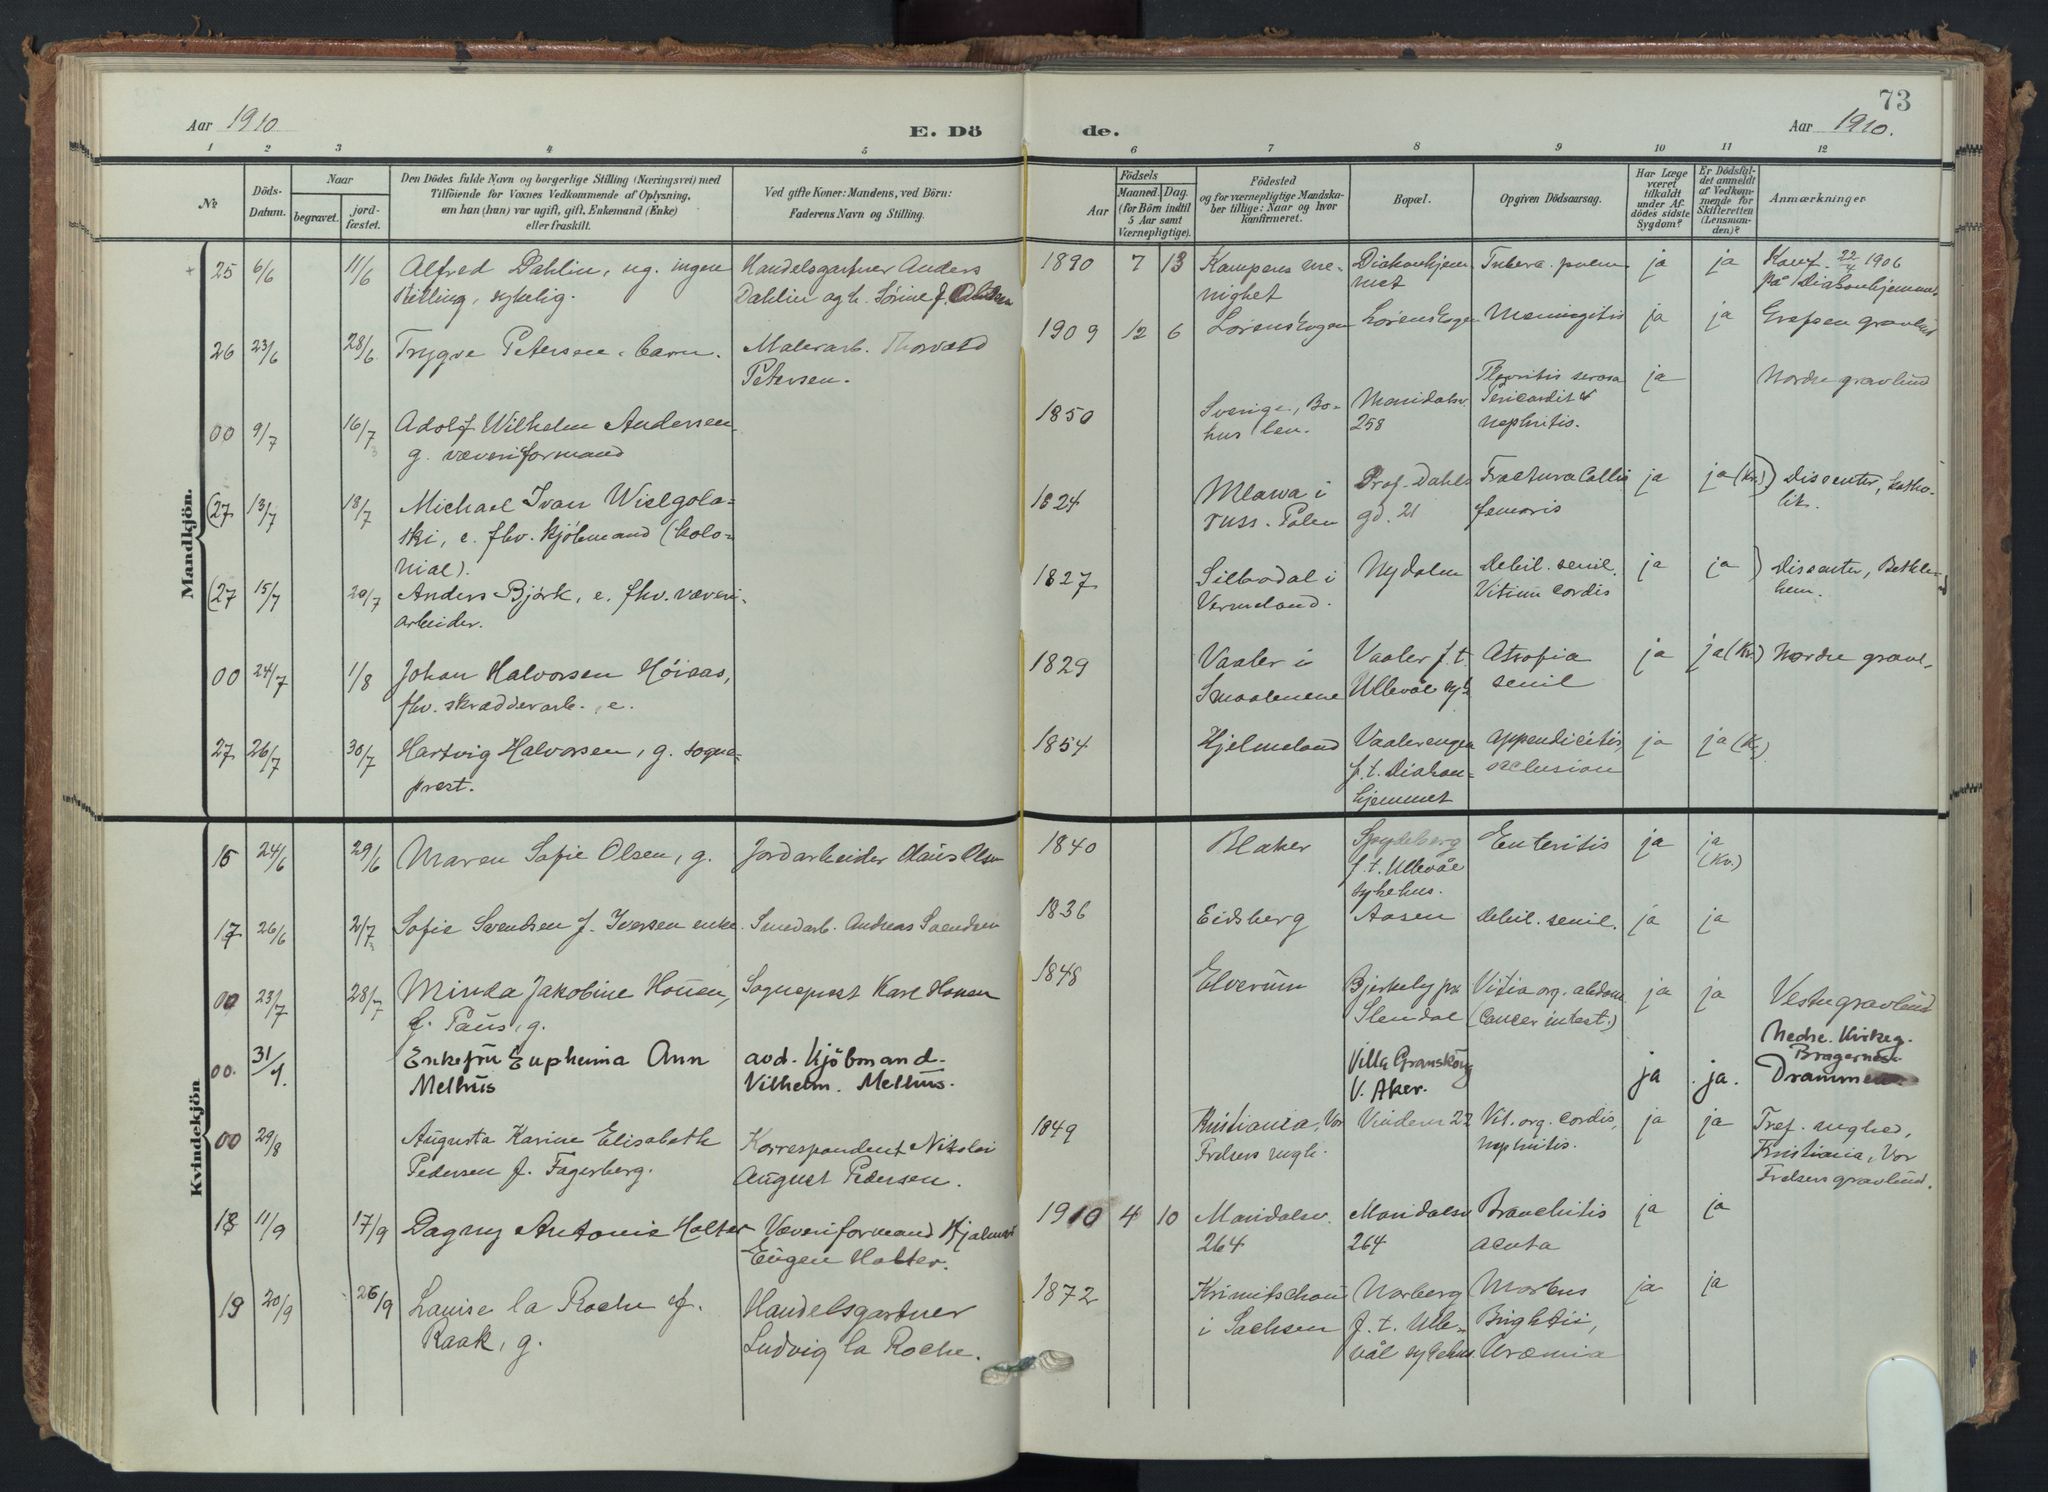 73
Aar 1910
E. Döde.
Aar 1910.
1 2 3 4 5 6 7 8 9 10 11 12
№
Döds-Datum.
Naar
begravet.
jord-fæstet.
Den Dödes fulde Navn og borgerlige Stilling (Næringsvei) med
Tilföiende for Voxnes Vedkommende af Oplysning,
om han (hun) var ugift, gift, Enkemand (Enke)
eller fraskilt.
Ved gifte Koner: Mandens, ved Börn:
Faderens Navn og Stilling.
Födsels
Aar
Maaned. Dag.
(for Börn indtil
5 Aar samt
Værnepligtige).
Födested
og for værnepligtige Mandska-
ber tillige: Naar og hvor
konfirmeret.
Bopæl.
Opgiven Dödsaarsag.
Har Læge
været
tilkaldt
under Af-
dödes sidste
Sygdom?
Er Dödsfal-
det anmeldt
af Vedkom-
mende for
Skifteretten
(Lensman-
den)?
Anmærkninger
Mandkjön.
25 6/6 11/6 Alfred Dahlin, ug. ingen Handelsgartner Anders 1890 7 13 Kampens me- Diakonhjem ja ja Konf. 22/4 1906
stilling, sykelig. Dahlin og h. Sörine f. nighet met på Diakonhjemmet
26 23/6 28/6 Trygve Petersen, barn. Malerarb. Thorvald 1909 12 6 Lörenskogen Lörenskogen Meningitis ja ja Grefsen gravlund
Petersen.
00 9/7 16/7 Adolf Wilhelm Andersen 1850 Sverige, Bo- Maridalsv. Plevritis serosa ja Nordre gravlund
g. væveriformand hus len. 258 Pericardit &
nephritis.
(27 13/7 18/7 Michael Ivan Wielgola- 1824 Mlawa i Prof. Dahls Fractura Collis ja ja (Kr.) ) Dissenter, katho-
ski, e. fhv. kjöbmand (kolo- russ. Polen gd. 21 femoris lik.
nial).
(27 15/7 20/7 Anders Björk, e. fhv. væveri- 1827 Silbodal i Nydalen Debil. senil. ja ja ) Dissenter, Bethle-
arbeider. Vermeland. Vitium cordis hem.
00 24/7 1/8 Johan Halvorsen Höiaas, 1829 Vaaler i Vaaler f.t. Atrofia ja ja (Kr.) Nordre gravl.
fhv. skrædderarb., e. Smaalenene Ullevål syk. senil
27 26/7 30/7 Hartvig Halvorsen, g. sogne- 1854 Hjelmeland Vaalerengen Appendicitis, ja ja (Kr.)
prest. f.t. Diakon- occlusion
hjemmet
Kvindekjön.
16 24/6 29/6 Maren Sofie Olsen, g. Jordarbeider Olaus Olsen 1840 Blaker Spydeberg Enteritis ja ja
f.t. Ullevål (Kv.)
sykehus.
17 26/6 2/7 Sofie Svendsen f. Iversen enke. Smedarb. Andreas Svendsen 1836 Eidsberg Aasen Debil. senil. ja ja
00 23/7 28/7 Minda Jakobine Houen, Sogneprest Karl Houen 1848 Elverum Bjerkely pr. Vitia org. abdom. ja ja Vestre gravlund
f. Paus, g. Slendal (Cancer intest.)
00. 31/1. Enkefru Euphemia Ann avd. Kjöbmand Villa Granskog ja ja. Nedre. Kirkeg.
Melhus Vilhelm. Melhus. V. Aker. Bragernes
Drammen
00 29/8 Augusta Karine Elisabeth Korrespondent Nikolai 1849 Kristiania, Vor Vindern 22 Vit. org. cordis, ja ja Tref. mghed,
Pedersen f. Fagerberg. August Pedersen. Frelsers mgh. nephritis. Kristiania, Vor
Frelsers gravlund.
18 11/9 17/9 Dagny Antonie Holter Væveriformand Hjalmar 1910 4 10 Maridalsv. Maridalsv. Bronchitis ja ja
Eugen Holter. 264 264 acuta
19 20/9 26/9 Louise la Roche f. Handelsgartner 1872 Krimitschau Norberg Morbus ja ja
Raak, g. Ludvig la Roche. i Sachsen f.t. Ulle- Brightii,
vål sykehus. Uræmia